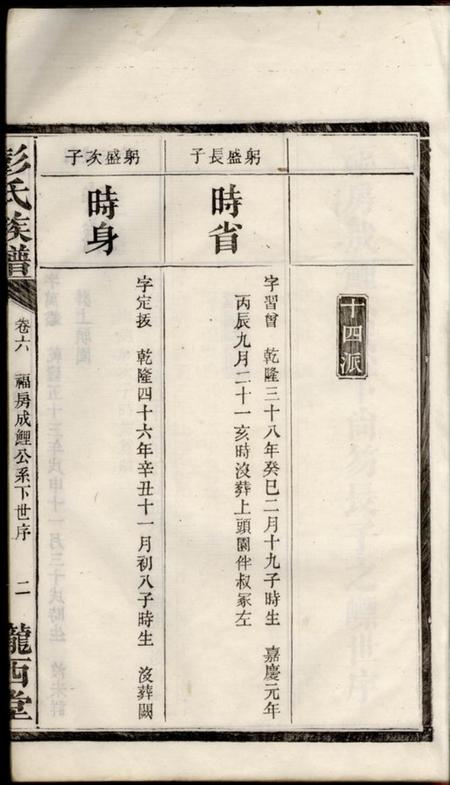 十四派
躬盛長子
時省
字習曾 乾隆三十八年癸巳二月十九子時生 嘉慶元年
丙辰九月二十一亥時沒葬上頭園伴叔冢左
躬盛次子
時身
字定扳 乾隆四十六年辛丑十一月初八子時生 沒葬闕
彭氏族譜
卷六 福房成鯉公系下世序 二
隴西堂